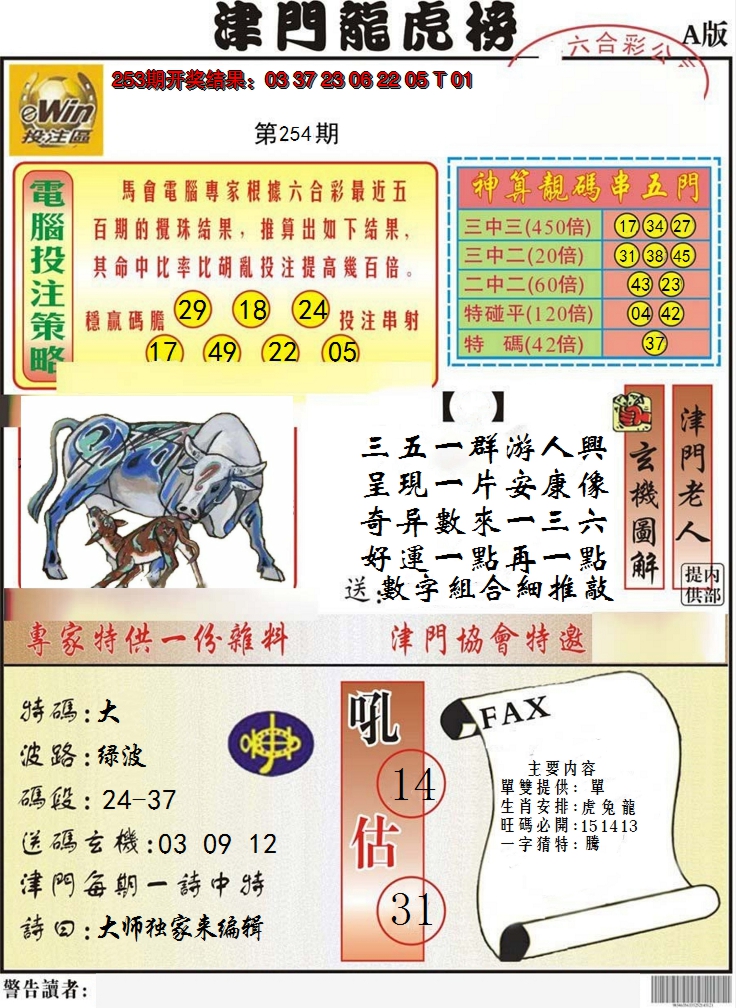 津門龍虎榜
A版
六合彩公
253期开奖结果：03 37 23 06 22 05 T 01
eWin
投注區
第254期
電腦投注策略
馬會電腦專家根據六合彩最近五
百期的攪珠结果，推算出如下结果，
其命中比率比胡亂投注提高幾百倍。
穩贏碼膽 29 18 24 投注串射
17 49 22 05
神算靚碼串五門
三中三(450倍) 17 34 27
三中二(20倍) 31 38 45
二中二(60倍) 43 23
特碰平(120倍) 04 42
特 碼(42倍) 37
【 】
三五一群游人興
呈現一片安康像
奇异數來一三六
好運一點再一點
送:數字組合細推敲
玄機圖解
津門老人
内部提供
專家特供一份雜料
津門協會特邀
特碼:大
波路:绿波
碼段: 24-37
送碼玄機:03 09 12
津門每期一詩中特
詩曰:大师独家来编辑
吼
14
估
31
FAX
主要内容
單雙提供: 單
生肖安排:虎兔龍
旺碼必開:151413
一字猜特:騰
警告讀者: